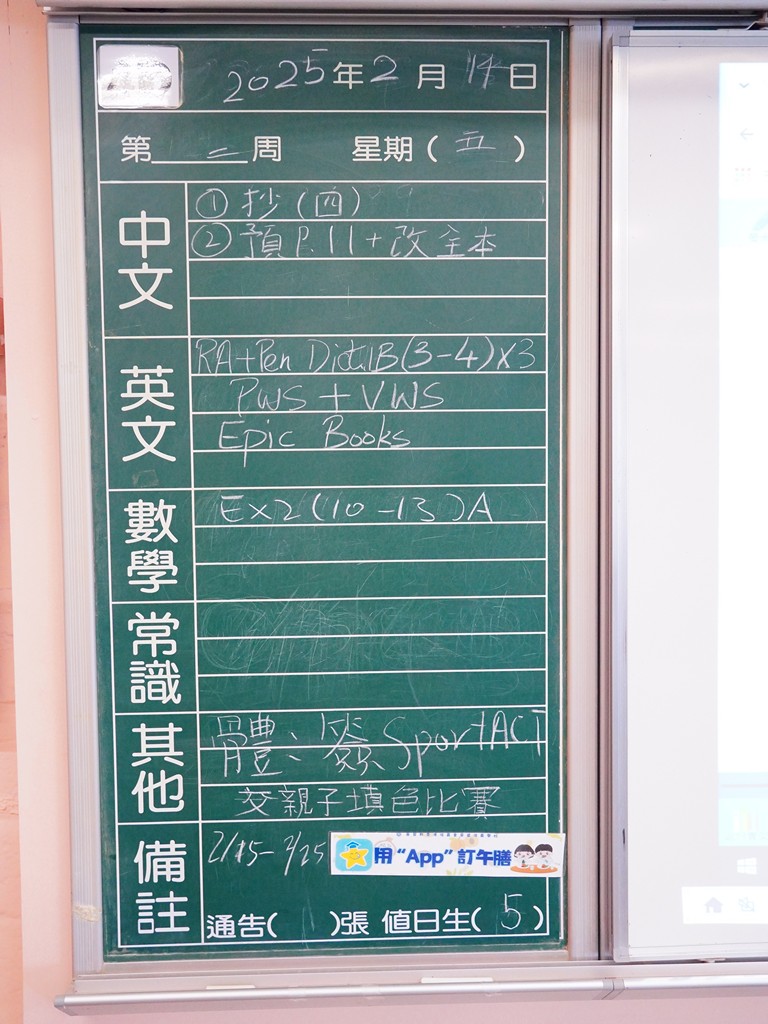 2025年2月14日
第 二 周 星期(五)
中文
① 抄(四)
② 預P.11+改全本
英文
RA+Pen Dict1B(3-4)x3
PWS+VWS
Epic Books
數學
Ex2(10-13)A
常識
其他
體: 簽SportACT
交親子填色比賽
備註
用“App”訂午膳
通告( )張 值日生(5)